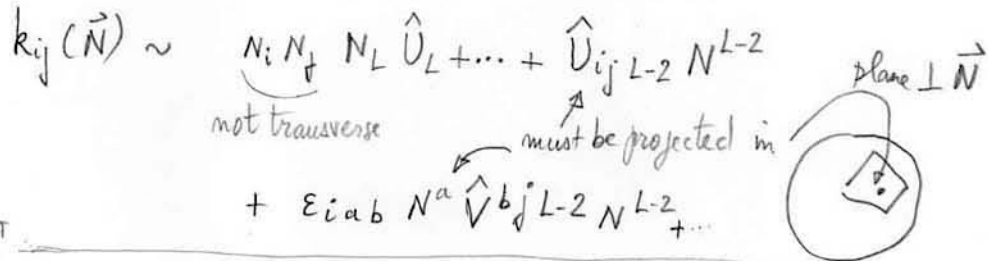 k_{ij}(\vec{N}) ~ N_i N_j N_L \hat{U}_L + ... + \hat{U}_{ij L-2} N^{L-2}
plane ⊥ \vec{N}
not transverse
must be projected in
+ ε_{iab} N^a \hat{V}^{b j L-2} N^{L-2} + ...
T